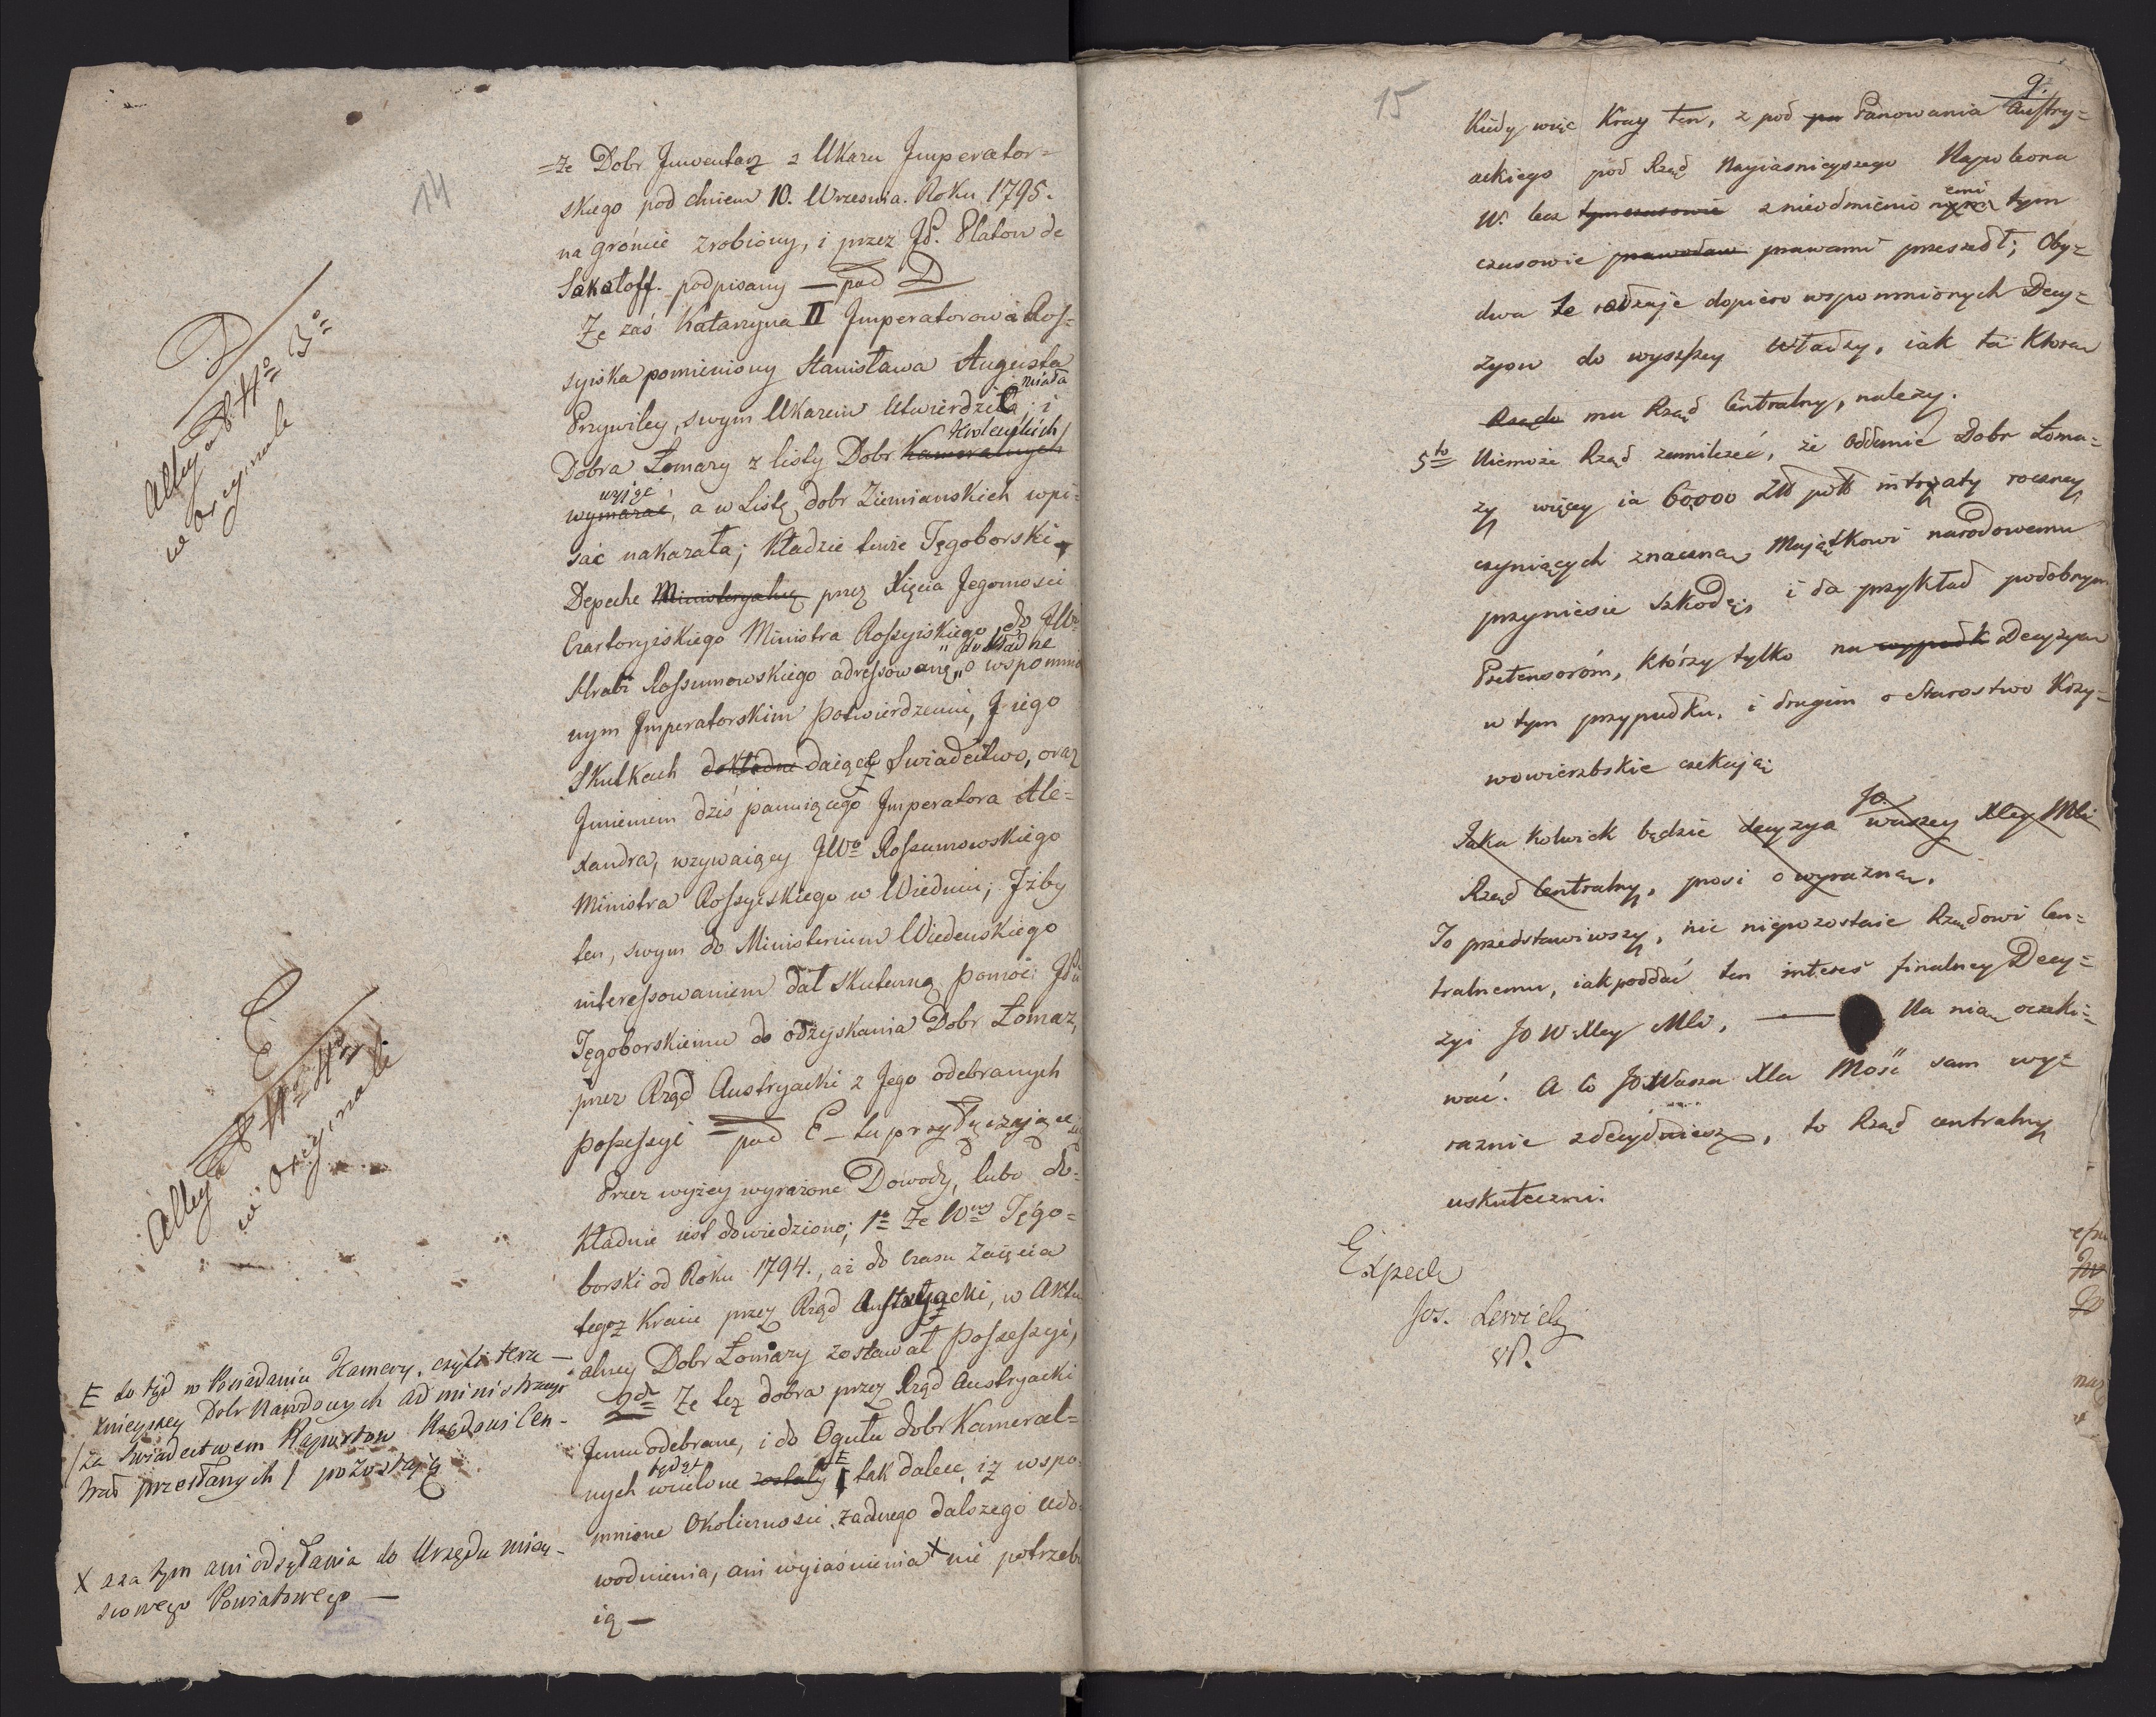 14
=że Dobr Jnwentarz z Ukazu Jmperator=
skiego pod dniem 10. Września. Roku 1795.
na gróncie zrobiony, i przez JP. Platow de
Sakatoff. podpisany — pod D
D
Alleg
w oryginale
Że zaś Katarzyna II Jmperatorowa Ros=
syiska pomieniony Stanisława Augusta
Przywiley, swym Ukazem Utwierdziła i
Dobra Łomazy z listy Dobr Kameralnych
wyiąć
wymazać, a w Listę dobr Ziemianskich wpi=
sać nakazała; Kładzie tenże Tęgoborski
Depeche Ministeryalną przez Xięcia Jegomości
Czartoryiskiego Ministra Rossyiskiego do JW
Hrabi Rossumowskiego adressowaną „dokładne o wspomnio
nym Jmperatorskim potwierdzeniu, J iego
Skutkach dokładne daiącą Swiadectwo, oraz
Jmieniem dziś panuiącego Jmperatora Ale=
xandra, wzywaiący JWo Rossumowskiego
Ministra Rossyiskiego w Wiedniu; Jżby
ten, swym do Ministerium Wiedenskiego
interessowaniem dał skuteczną pomoc JP
Tęgoborskiemu do odzyskania Dobr Łomaz,
przez Rząd Austryacki z Jego odebranych
possessyi — pod E — tu przyłączaiące
E
Alleg
w oryginale
Przez wyżey wyrażone Dowody, lubo do=
kładnie iest dowiedziono; 1o Że Wny Tęgo=
borski od Roku 1794., aż do Czasu Zaięcia
tegoz Kraiu przez Rząd Austryacki, w Aktu
alney Dobr Łomazy zostawał possessyi,
2do Że też dobra przez Rząd Austryacki
Jemu odebrane, i do Ogułu dobr Kameral=
nych wcielone zostały E tak dalece, iż wspo
mnione Okoliczności, żadnego dalszego udo=
wodnienia, ani wyiaśnienia X nie potrzebu
ią —
E do tąd w Posiadaniu Kamery, czyli tera—
znieyszey Dobr Narodowych administracyi
/za Swiadectwem Raportow Rządowi Cen-
tral przesłanych / pozostaią
X a za tym ani odsyłania do Urzędu mieys-
scowego Powiatowego —
15
9.
Kiedy więc Kray ten, z pod pa Panowania Austry=
ackiego pod Rząd Nayiasnieyszego Napoleona
W. lecz tymczasowie z nieodmienio nymi emi tym
czasowie prawodaw prawami przeszedł; Oby=
dwa te rodzaje dopiero wspomnionych Decy=
zyow do wyszszey Władzy, iak ta Która
Rządu ma Rząd Centralny, należy.
5to Niemoże Rząd zamilczeć, że Oddanie Dobr Łoma=
zy więcey ia 60,000 Zł pol intraty roczney
czyniących znaczną Maiątkowi narodowemu
przyniesie szkodę, i da przykład podobnym
Pretensoróm, którzy tylko na wypadk Decyzyą
w tym przypadku, i drugim o Starostwo Krzy=
wowierzbskie czekaią
Jaka kolwiek będzie decyzya JO. waszey Xcey Mci
Rząd Centralny, prosi o wyrazną.
To przedstawiwszy, nic niepozostaie Rządowi Cen=
tralnemu, iak poddać ten interes finalney Decy=
zyi JO W Xcey Mci, — Na nią oczeki=
wać. A co JO Wasza Xca Mość sam wy=
raznie zdecyduiesz, to Rząd centralny
uskuteczni.
Exped
Jos.